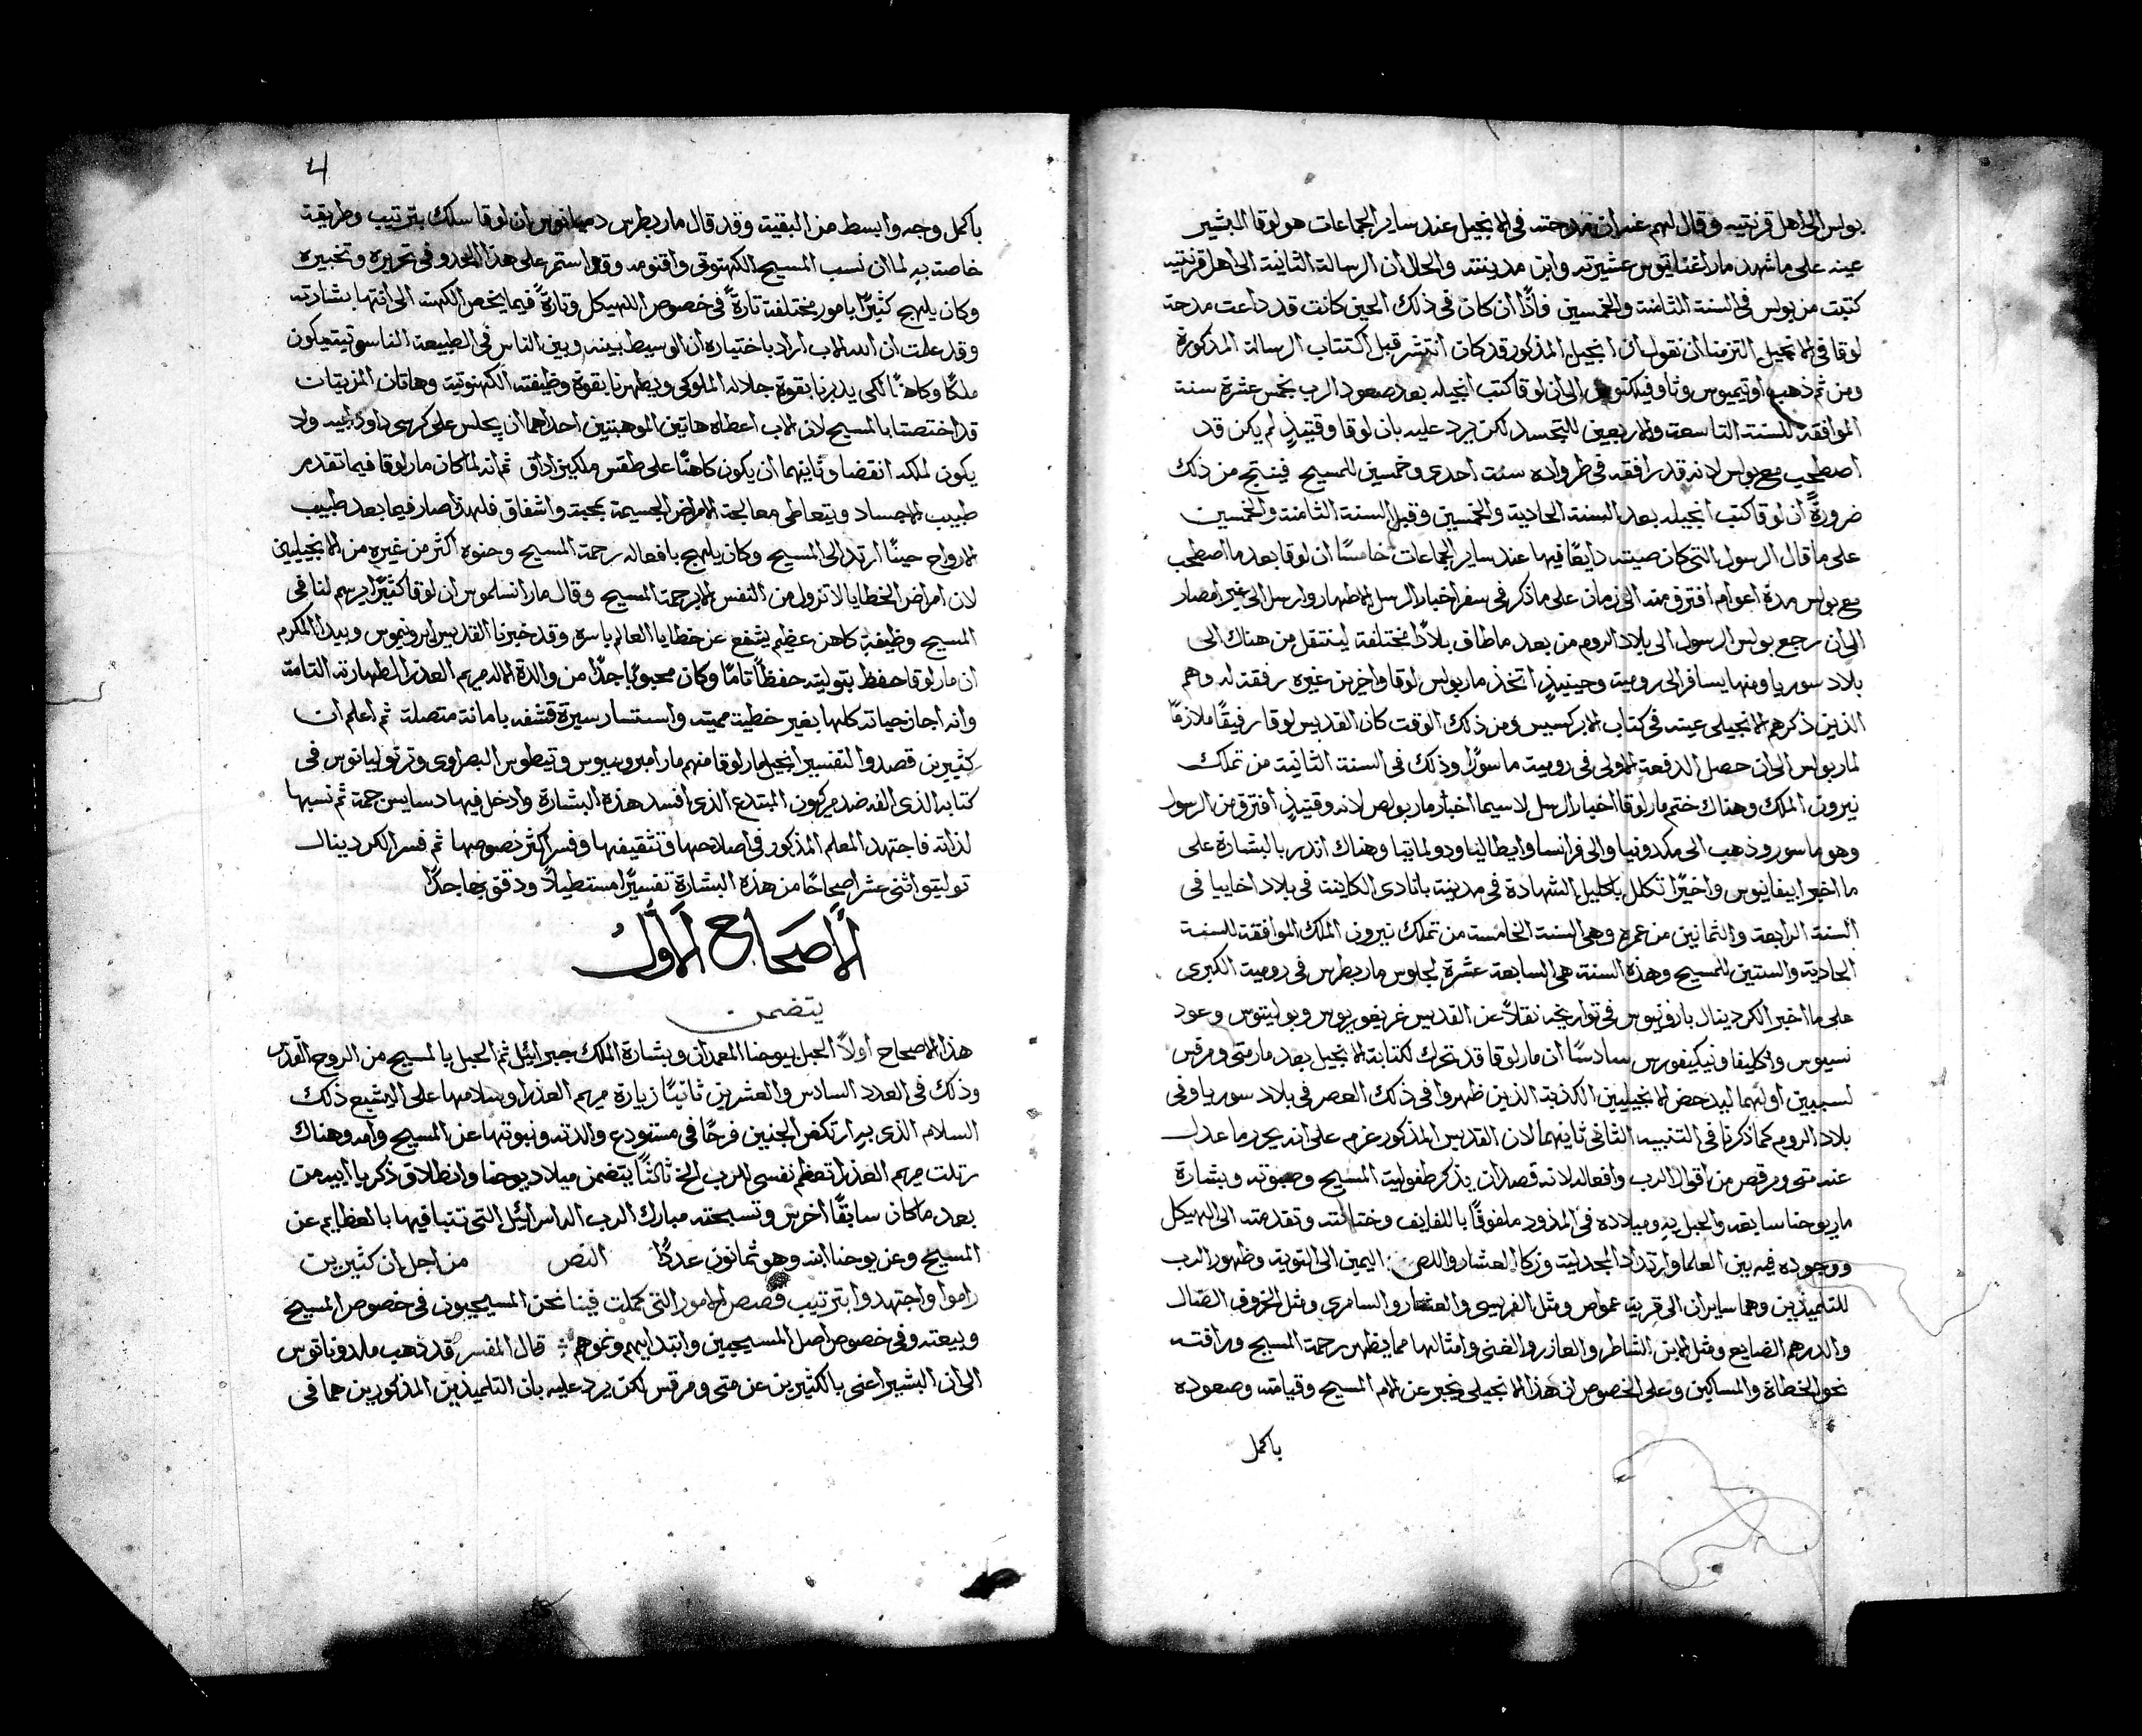 بولس الى اهل قرنتيه وقال لهم عنه ان مدحته في الانجيل عند ساير الجماعات هو لوقا البشير
عينه على ما شهد مار اغناتيوس عشيرته وابن مدينته والحال ان الرسالة الثانية الى اهل قرنتيه
كتبت من بولس في السنة الثامنة والخمسين فاذًا ان كان في ذلك الحين كانت قد ذاعت مدحة
لوقا في الانجيل التزمنا ان نقول ان انجيل المذكور قد كان انتشر قبل اكتتاب الرسالة المذكورة
ومن ثم ذهب اوتيميوس وثاوفيلكتوس الى ان لوقا كتب انجيله بعد صعود الرب بخمس عشرة سنة
الموافقة للسنة التاسعة والاربعين للتجسد لكن يرد عليه بان لوقا وقتيذٍ لم يكن قد
اصطحب مع بولس لانه قد رافقه في طرواده سنة احدى وخمسين للمسيح فينتج من ذلك
ضرورةً ان لوقا كتب انجيله بعد السنة الحادية والخمسين وقبل السنة الثامنة والخمسين
على ما قال الرسول التي كان صيته ذايعًا فيها عند ساير الجماعات خامسًا ان لوقا بعد ما اصطحب
مع بولس مدة اعوام افترق منه الى زمان على ما ذكر في سفر اخبار الرسل الاطهار وارسل الى غير امصار
الى ان رجع بولس الرسول الى بلاد الروم من بعد ما طاف بلادًا مختلفة لينتقل من هناك الى
بلاد سوريا ومنها يسافر الى رومية وحينيذٍ اتخذ مار بولس لوقا واخرين غيره رفقة له وهم
الذين ذكرهم الانجيلي عينه في كتاب الابركسيس ومن ذلك الوقت كان القديس لوقا رفيقًا ملازمًا
لمار بولس الى ان حصل الدفعة الاولى في رومية ماسورًا وذلك في السنة الثانية من تملك
نيرون الملك وهناك ختم مار لوقا اخبار الرسل لاسيما اخبار مار بولص لانه وقتيذٍ افترق من الرسول
وهو ماسور وذهب الى مكدونيا والى فرانسا وايطاليا ودولماتيا وهناك انذر بالبشارة على
ما اخبر ابيفانيوس واخيرًا تكلل باكليل الشهادة في مدينة باتادي الكاينة في بلاد اخاييا في
السنة الرابعة والثمانين من عمره وهي السنة الخامسة من تملك نيرون الملك الموافقة للسنة
الحادية والستين للمسيح وهذه السنة هي السابعة عشرة لجلوس مار بطرس في رومية الكبرى
على ما اخبر الكردينال بارونيوس في تواريخه نقلاً عن القديس غريغوريوس وبولينوس وعود
نسيوس واكليفا ونيكيفورس سادسًا ان مار لوقا قد تحرك لكتابة الانجيل بعد مار متى ومرقس
لسببين اولهما ليدحض الانجيليين الكذبة الذين ظهروا في ذلك العصر في بلاد سوريا وفي
بلاد الروم كما ذكرنا في التنبيه الثاني ثانيهما لان القديس المذكور عزم على انه يحرر ما عدل
عنه متى ومرقص من اقوال الرب وافعاله لانه قصد ان يذكر طفولية المسيح وصبوته وبشارة
مار يوحنا سابقه والحبل به وميلاده في المذود ملفوفًا باللفايف وختانته وتقدمته الى الهيكل
ووجوده فيه بين العلما وارتداد المجدلية وزكا العشار واللص اليمين الى التوبة وظهور الرب
للتلميذين وهما سايران الى قرية عمواص ومثل الفريسي والعشار والسامري ومثل الخروف الضال
والدرهم الضايع ومثل الابن الشاطر والعازر والغني وامثالها مما يظهر رحمة المسيح ورافته
نحو الخطاة والمساكين وعلى الخصوص ان هذا الانجيلي يخبر عن الام المسيح وقيامته وصعوده
باكمل
4
باكمل وجه وابسط من البقية وقد قال مار بطرس دميانوس ان لوقا سلك بترتيب وطريقة
خاصة به لما ان نسب المسيح الكهنوتي واقنومه وقد استمر على هذا الحذو في تحريره وتخبيره
وكان يلهج كثيرًا بامور مختلفة تارةً في خصوص الهيكل وتارةً فيما يخص الكهنة الى انتها بشارته
وقد علمت ان الله الاب اراد باختياره ان الوسيط بينه وبين الناس في الطبيعة الناسوتية يكون
ملكًا وكاهنًا لكي يدبرنا بقوة جلاله الملوكي ويطهرنا بقوة وظيفته الكهنوتية وهاتان المزيتان
قد اختصتا بالمسيح لان الاب اعطاه هاتين الموهبتين احداهما ان يجلس على كرسي داود ابيه ولا
يكون لملكه انقضا وثانيهما ان يكون كاهنًا على طقس ملكيزاداق ثم انه لما كان مار لوقا فيما تقدم
طبيب الاجساد ويتعاطى معالجة الامراض الجسيمة بمحبة واشفاق فلهذا صار فيما بعد طبيب
الارواح حينًا ارتد الى المسيح وكان يلهج بافعاله رحمة المسيح وحنوه اكثر من غيره من الانجيليين
لان امراض الخطايا لا تزول من النفس الا برحمة المسيح وقال مار انسلموس ان لوقا كثيرًا يرسم لنا في
المسيح وظيفة كاهن عظيم يشفع عن خطايا العالم باسره وقد خبرنا القديس ايرونيموس وبيدا المكرم
ان مار لوقا حفظ بتوليته حفظًا تامًا وكان محبوبًا جدًا من والدة الاله مريم العذرا لطهارته التامة
وانه اجاز حياته كلها بغير خطية مميتة واستسار سيرة قشفه بامانة متصلة ثم اعلم ان
كثيرين قصدوا لتفسير انجيل مار لوقا منهم مار امبروسيوس وتيطوس البصراوي وترتوليانوس في
كتابه الذي الفه ضد مركيون المبتدع الذي افسد هذه البشارة وادخل فيها دسايس جمة ثم نسبها
لذاته فاجتهد المعلم المذكور في اصلاحها وتثقيفها وفسر اكثر نصوصها ثم فسر الكردينال
توليتو اثنى عشر اصحاحًا من هذه البشارة تفسيرًا مستطيلاً ودقق بها جدًا
الأصحاح الأول
يتضمن
هذا الاصحاح اولاً الحبل بيوحنا المعمدان وبشارة الملك جبرائيل ثم الحبل بالمسيح من الروح القدس
وذلك في العدد السادس والعشرين ثانيًا زيارة مريم العذرا وسلامها على اليشبع ذلك
السلام الذي به ارتكض الجنين فرحًا في مستودع والدته ونبوتها عن المسيح وامه وهناك
رتلت مريم العذرا تعظم نفسي الرب الخ ثالثًا يتضمن ميلاد يوحنا وانطلاق زكريا ابيه من
بعد ما كان سابقًا اخرس وتسبحته مبارك الرب اله اسرائيل التي تنبا فيها بالعظايم عن
المسيح وعن يوحنا ابنه وهو ثمانون عددًا النص من اجل ان كثيرين
راموا واجتهدوا بترتيب قصص الامور التي كملت فينا نحن المسيحيون في خصوص المسيح
وبيعته وفي خصوص اصل المسيحيين وابتدايهم ونموهم قال المفسر قد ذهب ملدوناتوس
الى ان البشير اعنى بالكثيرين عن متى ومرقس لكن يرد عليه بان التلميذين المذكورين هما في